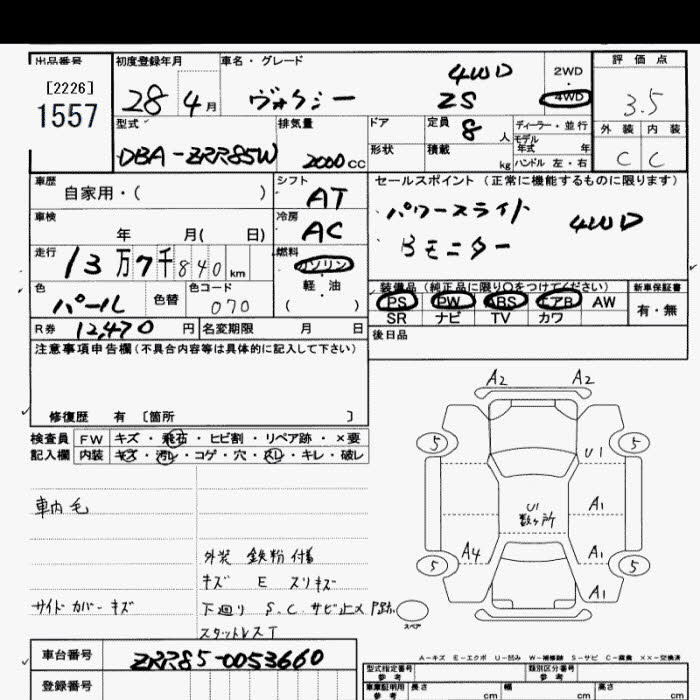 出品番号 初度登録年月 車名・グレード 評価点
[2226]
1557
28 4月 ヴォクシー 4WD ZS 2WD 4WD 3.5
型式 排気量 ドア 定員 8人 ディーラー・並行 外装 内装
形状 積載 kg モデル年式 年 ハンドル 左・右
DBA-ZRR85W 2000cc C C
車歴 シフト セールスポイント(正常に機能するものに限ります)
自家用・( ) AT
・パワースライド 4WD
車検 冷房
年 月( 日) AC
・Bモニター
走行 燃料
13万7千840km ガソリン・軽・油( )
色 色替 カラーコード 装備品(純正品に限り○をつけてください) 新車保証書
パール 070 PS PW ABS エアB AW 有・無
SR ナビ TV カワ
R券 12,470円 名変期限 月 日 後日品
注意事項申告欄(不具合内容等は具体的に記入して下さい)
修復歴 有 〔箇所 〕
検査員 FW キズ・飛石・ヒビ割・リペア跡・×要
記入欄 内装 キズ・汚レ・コゲ・穴・スレ・キレ・破レ
A2 A2
5 5
U1
U1 数ヶ所 A1
A4 A1
5 5
A1
スペア
車内毛
外装 鉄粉付着
キズ E スリキズ
サイドカバーキズ 下廻り S.C サビ止メP跡
スタットレスT
A-キズ E-エクボ U-凹み W-補修跡 S-サビ C-腐食 ××-交換済
車台番号 ZRR85-0053660 型式指定番号 参考 類別区分番号 参考
登録番号 車庫証明用 参考 長さ cm 幅 cm 高さ cm